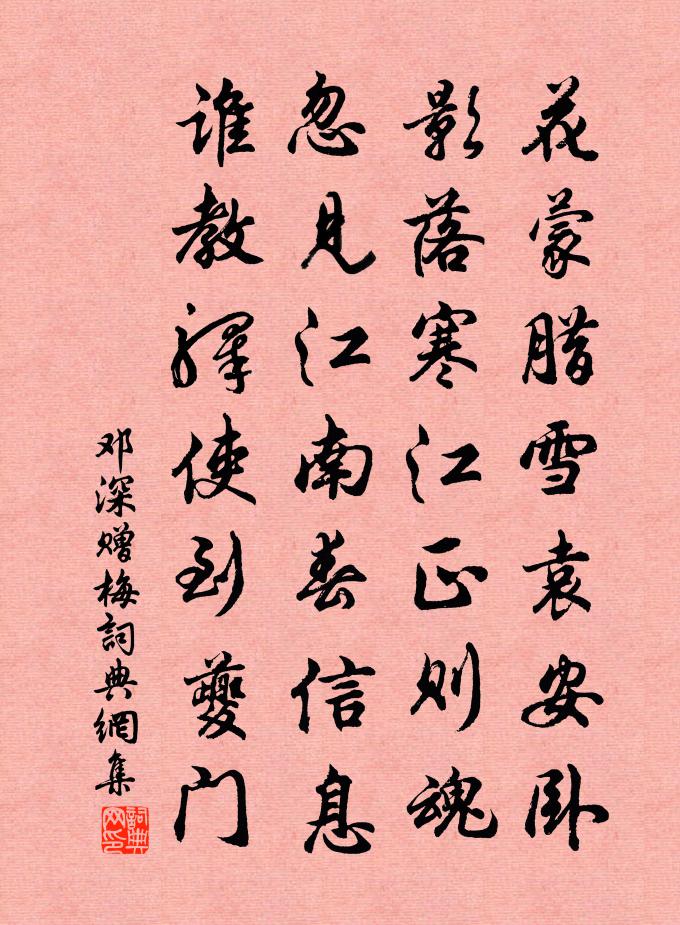 花蒙腊雪袁安卧
影落寒江正则魂
忽见江南春信息
谁教驿使到夔门
邓深赠梅詞典網集
詞典网印